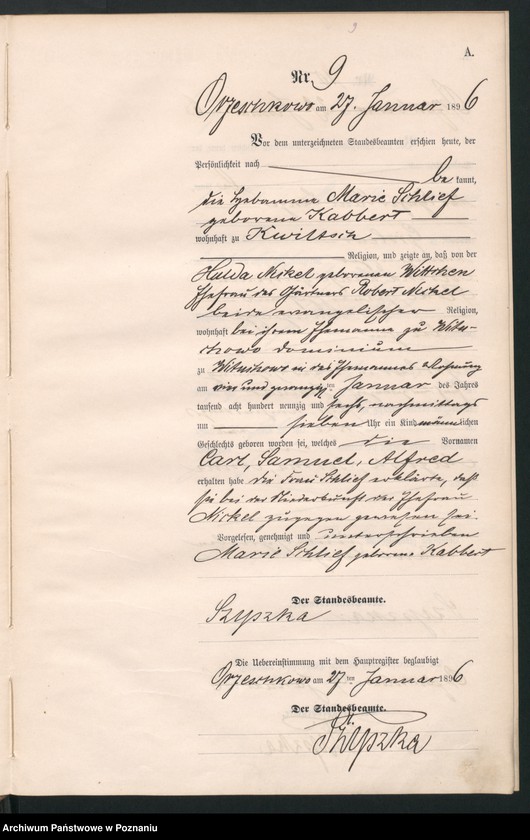 9
A.
Nr. 9
Orzeschkowo am 27. Januar 1896
Vor dem unterzeichneten Standesbeamten erschien heute, der
Persönlichkeit nach
be kannt,
die Hebamme Marie Schlief
geborene Kabbert
wohnhaft zu Kwiltsch
Religion, und zeigte an, daß von der
Hulda Nickel geborenen Wittchen
Ehefrau des Gärtners Robert Nickel
beide evangelischer Religion,
wohnhaft bei ihrem Ehemanne zu
dominium
zu in des Ehemannes Wohnung
am vier und zwanzigsten Januar des Jahres
tausend acht hundert neunzig und sechs, nachmittags
um sieben Uhr ein Kind männlichen
Geschlechts geboren worden sei, welches die Vornamen
Carl, Samuel, Alfred
erhalten habe. Die Frau Schlief erklärte, daß
sie bei der Niederkunft der Ehefrau
Nickel zugegen gewesen sei.
Vorgelesen, genehmigt und unterschrieben
Marie Schlief geborene Kabbert
Der Standesbeamte.
Szyszka
Die Uebereinstimmung mit dem Hauptregister beglaubigt
Orzeschkowo am 27ten Januar 1896
Der Standesbeamte.
Szyszka
Archiwum Państwowe w Poznaniu